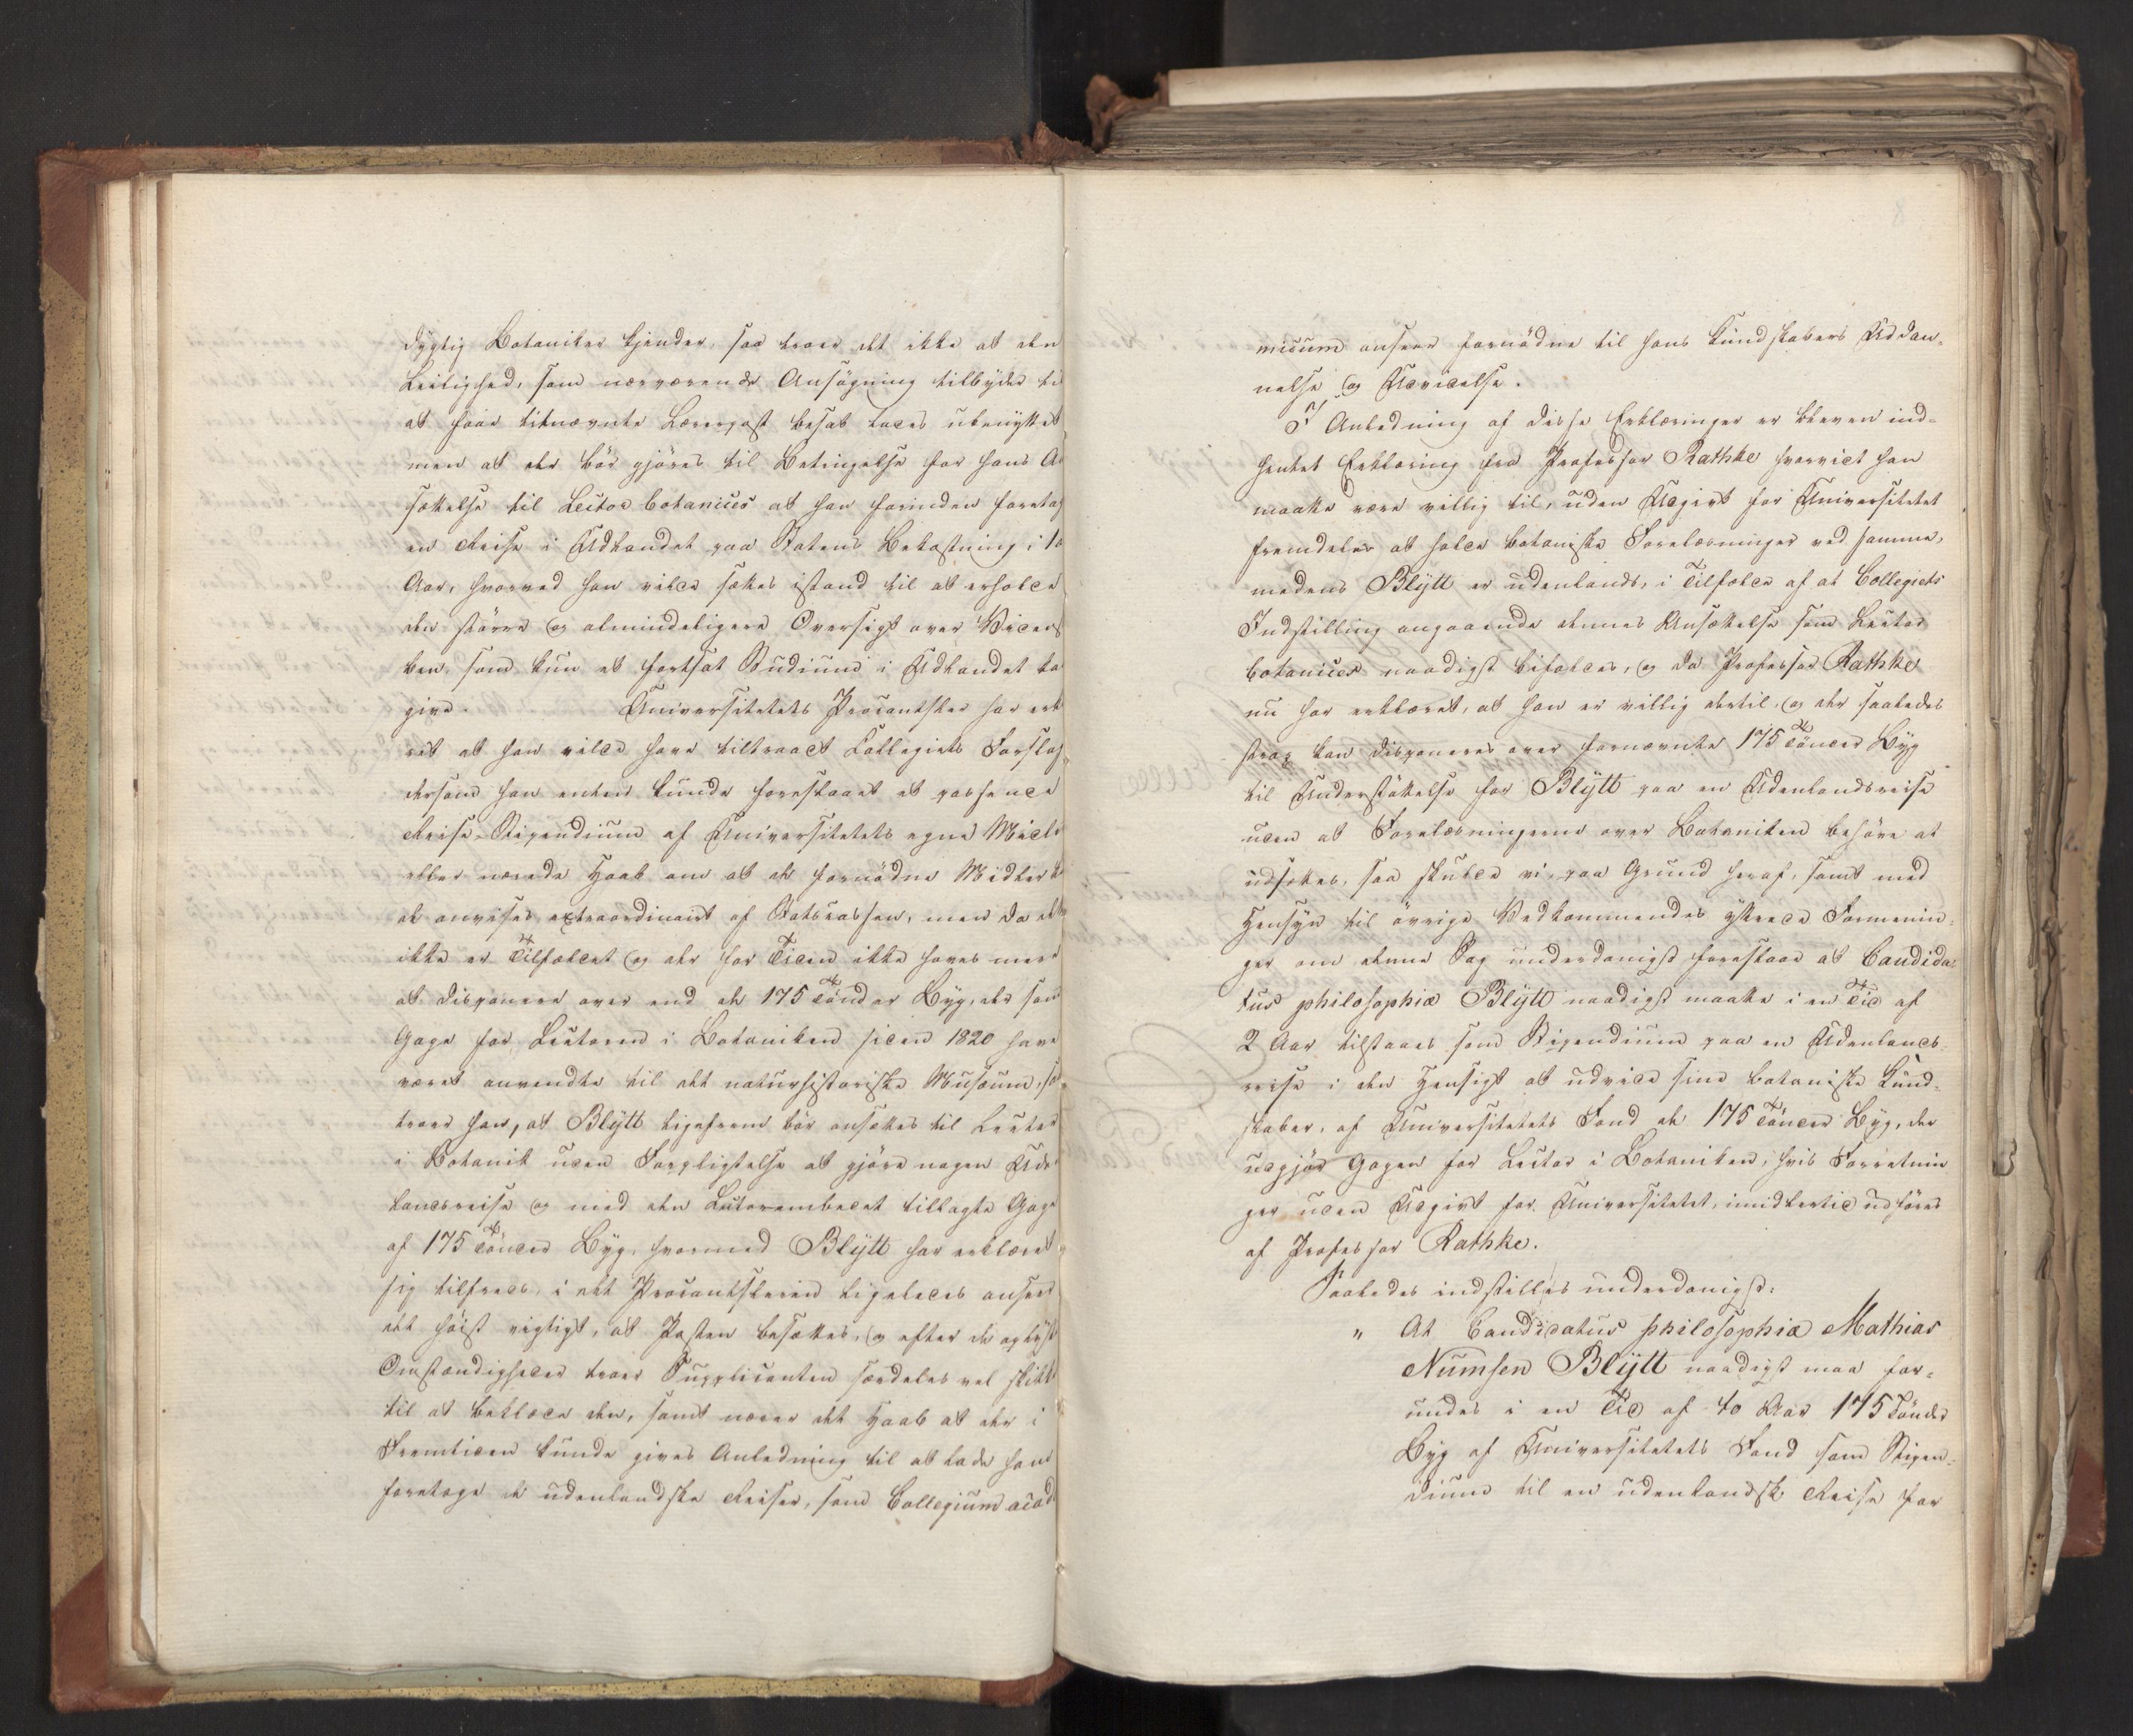 dygtig Botaniker kjender, saa troer det ikke at den
Leilighed, som nærværende Ansøgning tilbyder til
at faae bemeldte Lærerpost besat lades ubenyttet
men at der bör gjöres til Betingelse for hans An
sættelse til Lector botanices at han forinden foretag
en Reise i Udlandet paa Statens Bekostning i to
Aar, hvorved han vilde sættes istand til at erholde
den större og almindeligere Oversigt over Videns
ben, som kun et fortsat Studium i Udlandet ka
give. Universitetets Procantsler har erk
ret at han vilde have tiltraadt Collegiets Forslag
dersom han enten kunde foreslaaet et passende
Reise-Stipendium af Universitetets egne Midl
eller nærede Haab om at de fornödne Midler
at anvises extraordinairt af Statscassen, men da det
ikke er Tilfældet og der for Tiden ikke haves mere
at disponere over end de 175 Tönder Byg, der som
Gage for Lectoren i Botaniken siden 1820 have
været anvendte til det naturhistoriske Musæum, saa
troer han, at Blÿtt ligefrem bör ansættes til Lector
i Botanik uden Forpligtelse at gjöre nogen Uden
landsreise og med den Lectorembedet tillagte Gage
af 175 Tönder Byg, hvormed Blÿtt har erklæret
sig tilfreds, i det Procantsleren ligeledes anseer
det höist vigtigt, at Posten besættes, og efter de oplyste
Omstændigheder troer Supplicanten særdeles vel skikket
til at beklæde den, samt nærer det Haab at der i
Fremtiden kunde gives Anledning til at lade ham
foretage de udenlandske Reiser, som Collegium acad
micum anseer fornödne til hans Kundskabers Uddan-
nelse og Udvidelse.
I Anledning af disse Erklæringer er bleven ind-
hentet Erklæring fra Professor Rathke hvorvidt han
maatte være villig til, uden Udgivt for Universitetet
fremdeles at holde botaniske Forelæsninger ved samme,
medens Blÿtt er udenlands, i Tilfælde af at Collegiets
Indstilling angaaende dennes Ansættelse som Lector
botanices naadigst bifaldes, og da Professor Rathke
nu har erklæret, at han er villig dertil, og der saaledes
strax kan disponeres over fornævnte 175 Tönder Byg
til Understöttelse for Blÿtt paa en Udenlandsreise
uden at Forelæsningerne over Botaniken behöve at
udsættes, saa skulde vi, paa Grund heraf, samt med
Hensyn til övrige Vedkommendes yttrede Formenin-
ger om denne Sag underdanigst foreslaae at Candida-
tus philosophiæ Blÿtt naadigst maatte i en Tid af
2 Aar tilstaaes som Stipendium paa en Udenlands-
reise i den Hensigt at udvide sine botaniske Kund-
skaber, af Universitetets Fond de 175 Tönder Byg, der
udgjör Gagen for Lector i Botaniken, hvis Forretnin
ger uden Udgivt for Universitetet, imidlertid udföres
af Professor Rathke.
Saaledes indstilles underdanigst:
" At Candidatus philosophiæ Mathias
Numsen Blÿtt naadigst maa for-
undes i en Tid af to Aar 175 Tönder
Byg af Universitetets Fond som Stipen-
dium til en udenlandsk Reise for